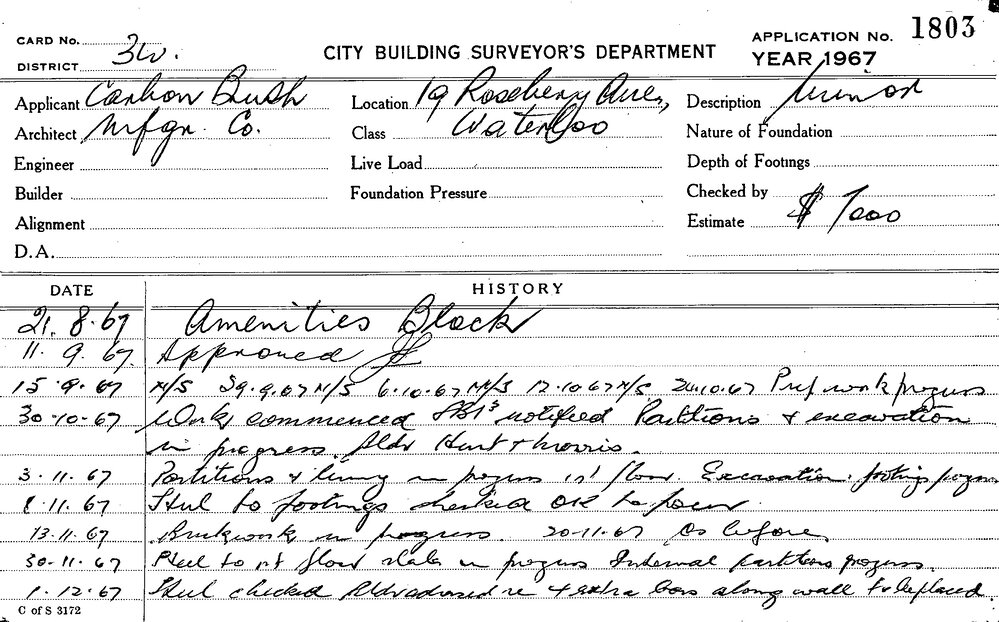 CARD No.
DISTRICT 3W.
CITY BUILDING SURVEYOR'S DEPARTMENT
APPLICATION No. 1803
YEAR 1967
Applicant Carbon Brush
Location 19 Rosebery Ave,
Description Minor
Architect Mfgr. Co.
Class Waterloo
Nature of Foundation
Engineer
Live Load
Depth of Footings
Builder
Foundation Pressure
Checked by
Alignment
Estimate $ 7000
D.A.
DATE HISTORY
21.8.67 Amenities Block
11.9.67 Approved
15.9.67 N/S 29.9.67 N/S 6.10.67 N/S 12.10.67 N/S 24.10.67 Prep work progress
30.10.67 Work commenced notified Partitions & excavation
in progress. Bldr Hunt & Morris.
3.11.67 Partitions & lining in progress 1st floor. Excavation footing progress
8.11.67 Steel to footings checked OK to pour
13.11.67 Brickwork in progress. 20.11.67 As before
30.11.67 Steel to 1st floor slab in progress Internal partitions progress.
1.12.67 Steel checked Bldr advised re 4 extra bars along wall to be placed.
C of S 3172